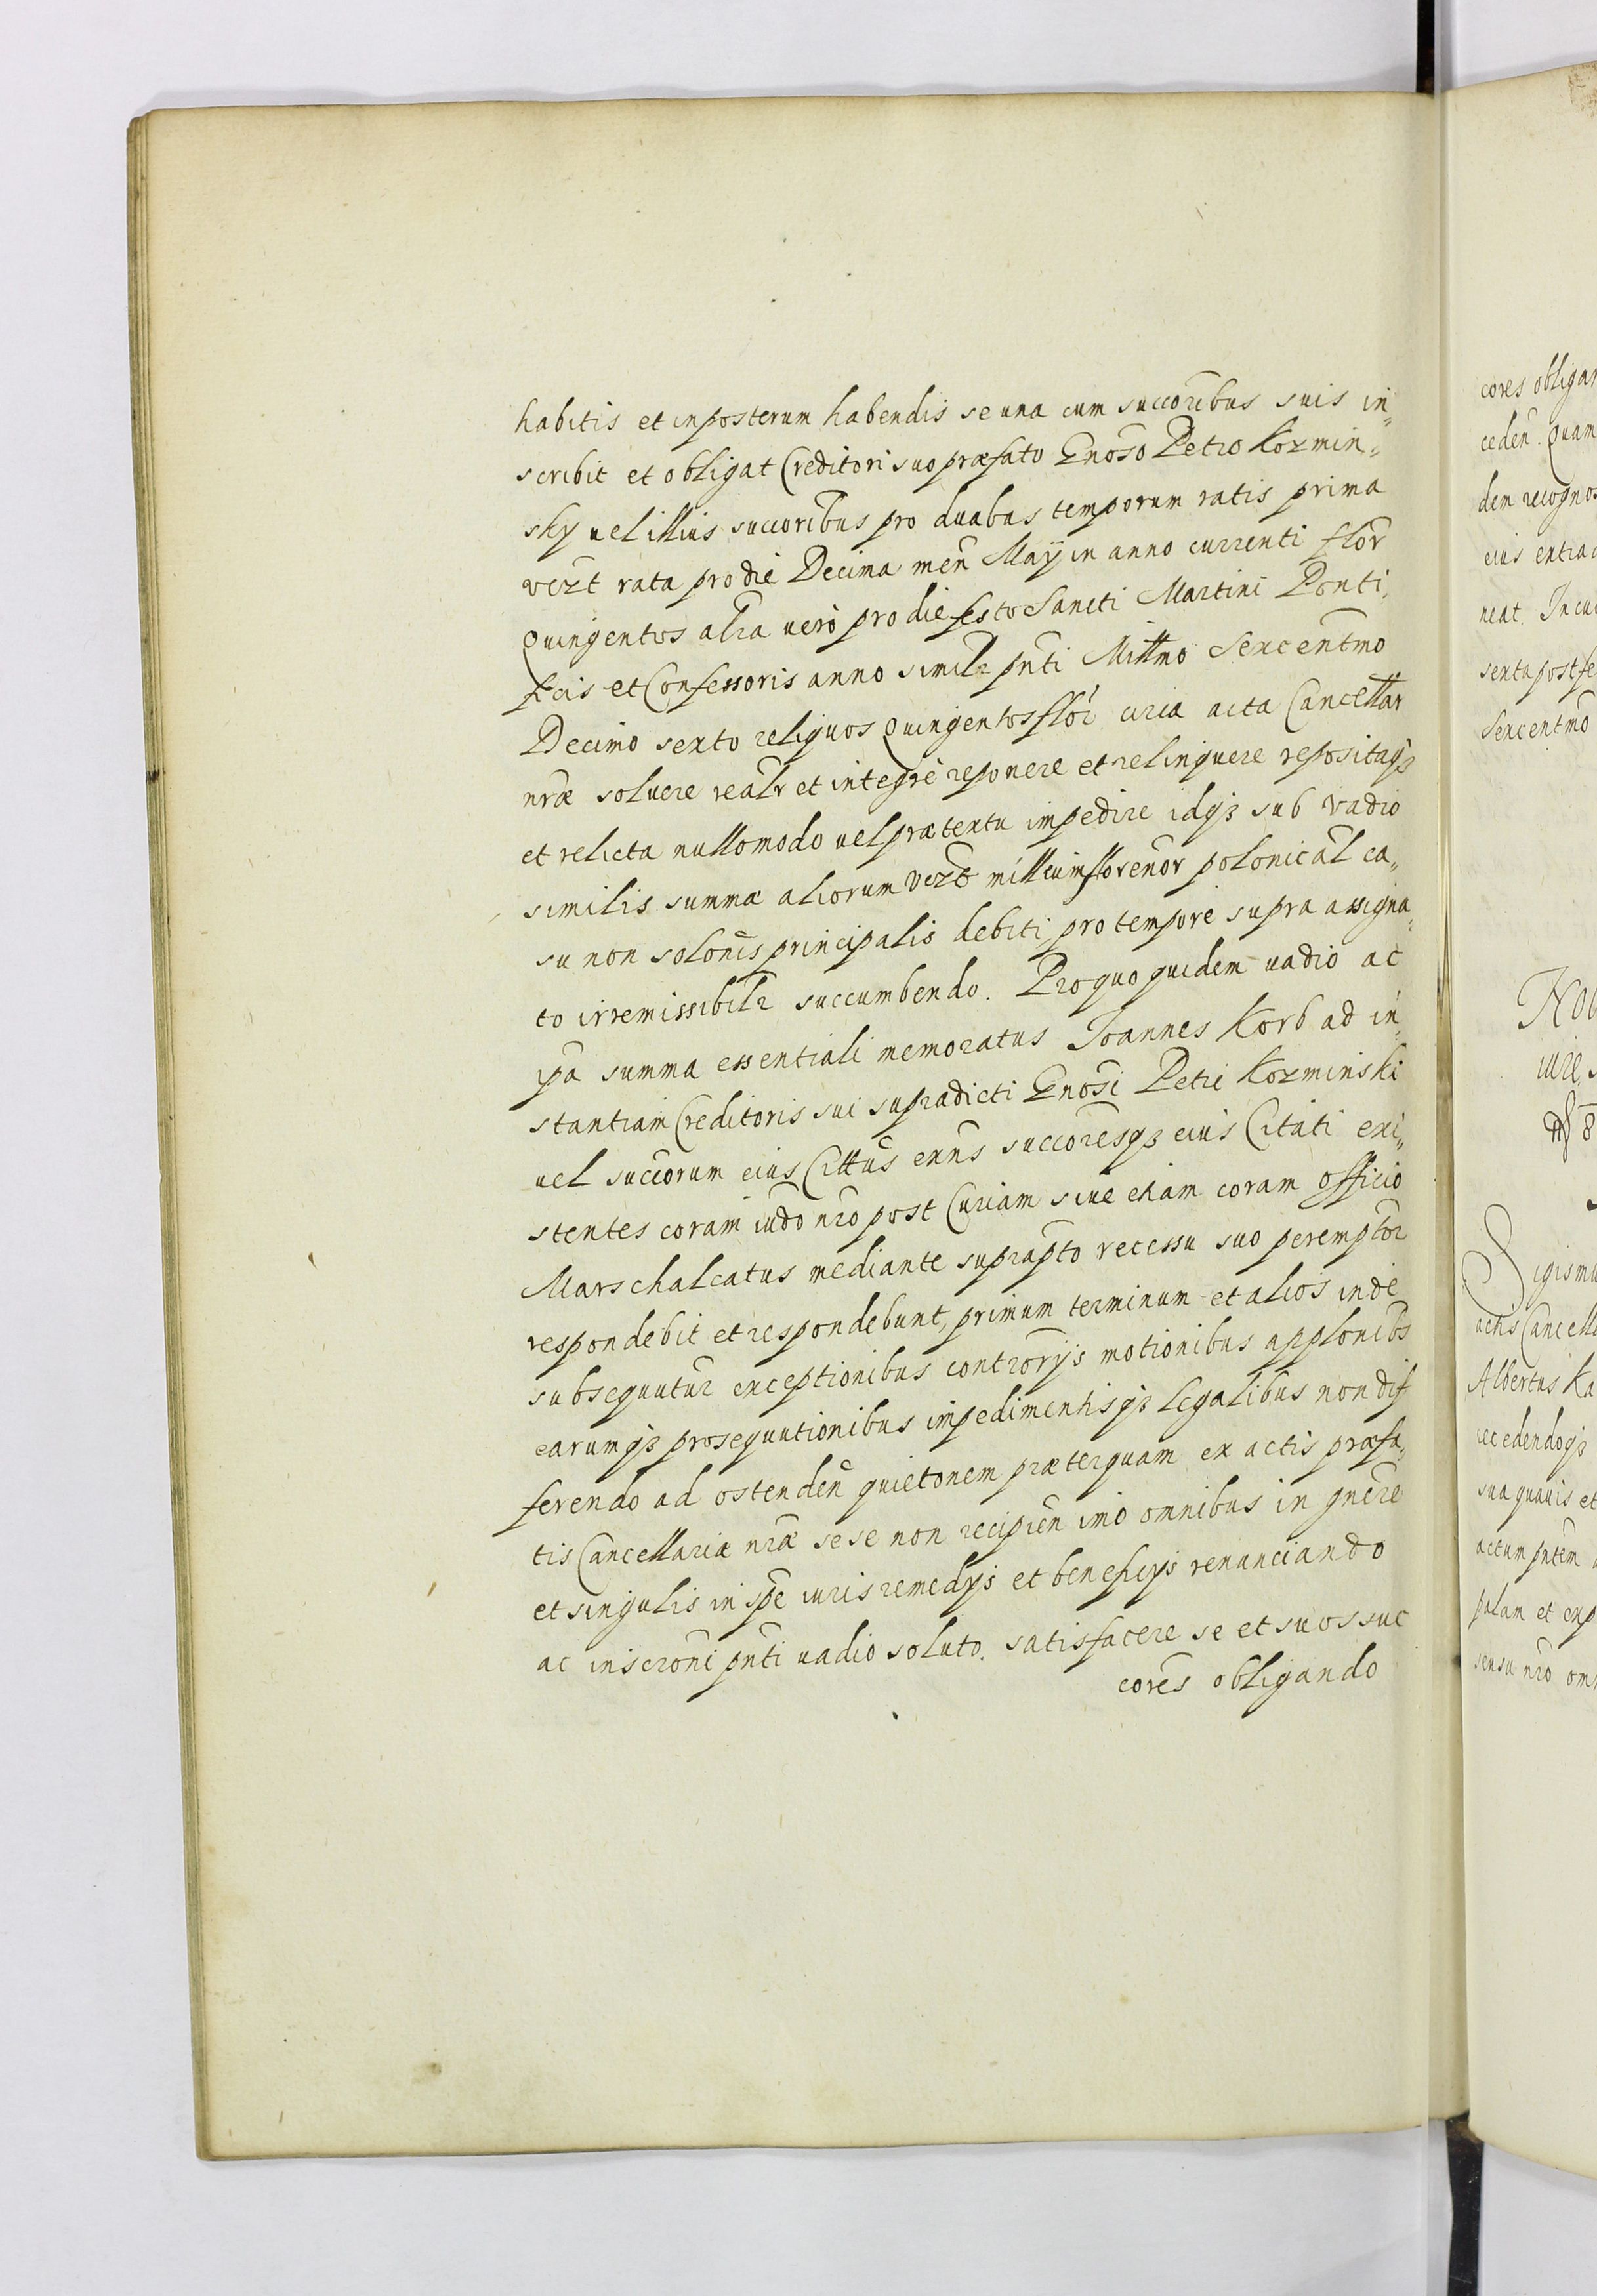 habitis et inposterum habendis se una cum succoribus suis in„
scribit et obligat Creditori suo præfato Gnoso Petro Kozmin„
sky uel illius succoribus pro duabus temporum ratis prima
vezt rata pro die Decima men Maÿ in anno currenti flor
Quingentos alia uero pro die festo Sancti Martini Ponti„
ficis et Confessoris anno similr pnti Millmo Sexcentmo
Decimo sexto reliquos Quingentos flor circa acta Cancellar
nræ soluere realr et integre reponere et relinquere repositaqz
et relicta nullomodo uel prætextu impedire idqz sub vadio
similis summæ aliorum vezt mille um florenor polonical ca„
su non solonis principalis debiti, pro tempore supra assigna„
to irremissibilr succumbendo. Pro quo quidem uadio ac
ipa summa essentiali memoratus Joannes Korb ad in„
stantiam Creditoris sui supradicti Gnosi Petri Kozminski
uel succorum eius Cittus exns succoresqz eius Citati exi„
stentes coram iudo nro post Curiam siue etiam coram officio
Marschalcatus mediante suprapto recessu suo peremptor
respondebit et respondebunt, primum terminum et alios inde
subsequutur exceptionibus controrÿs motionibus applonibs
earumqz prosequutionibus impedimentisqz legalibus non dif
ferendo ad ostenden quietonem præterquam ex actis præfa„
tis Cancellariæ nræ sese non recipien imo omnibus in gnere
et singulis in spe iuris remedÿs et beneficÿs renunciando
ac inscroni pnti uadio soluto. satisfacere se et suos suc
cores obligando
cores obligan
ceden. Quam
dem recognos
eius extrac
neat. In cui
sexta post fe
Sexcentmo
Nob
iure
Sigismu
actis Cancella
Albertus Ka
recedendoqz
sua quauis et
actum pntem
palam et exp
sensu nro om